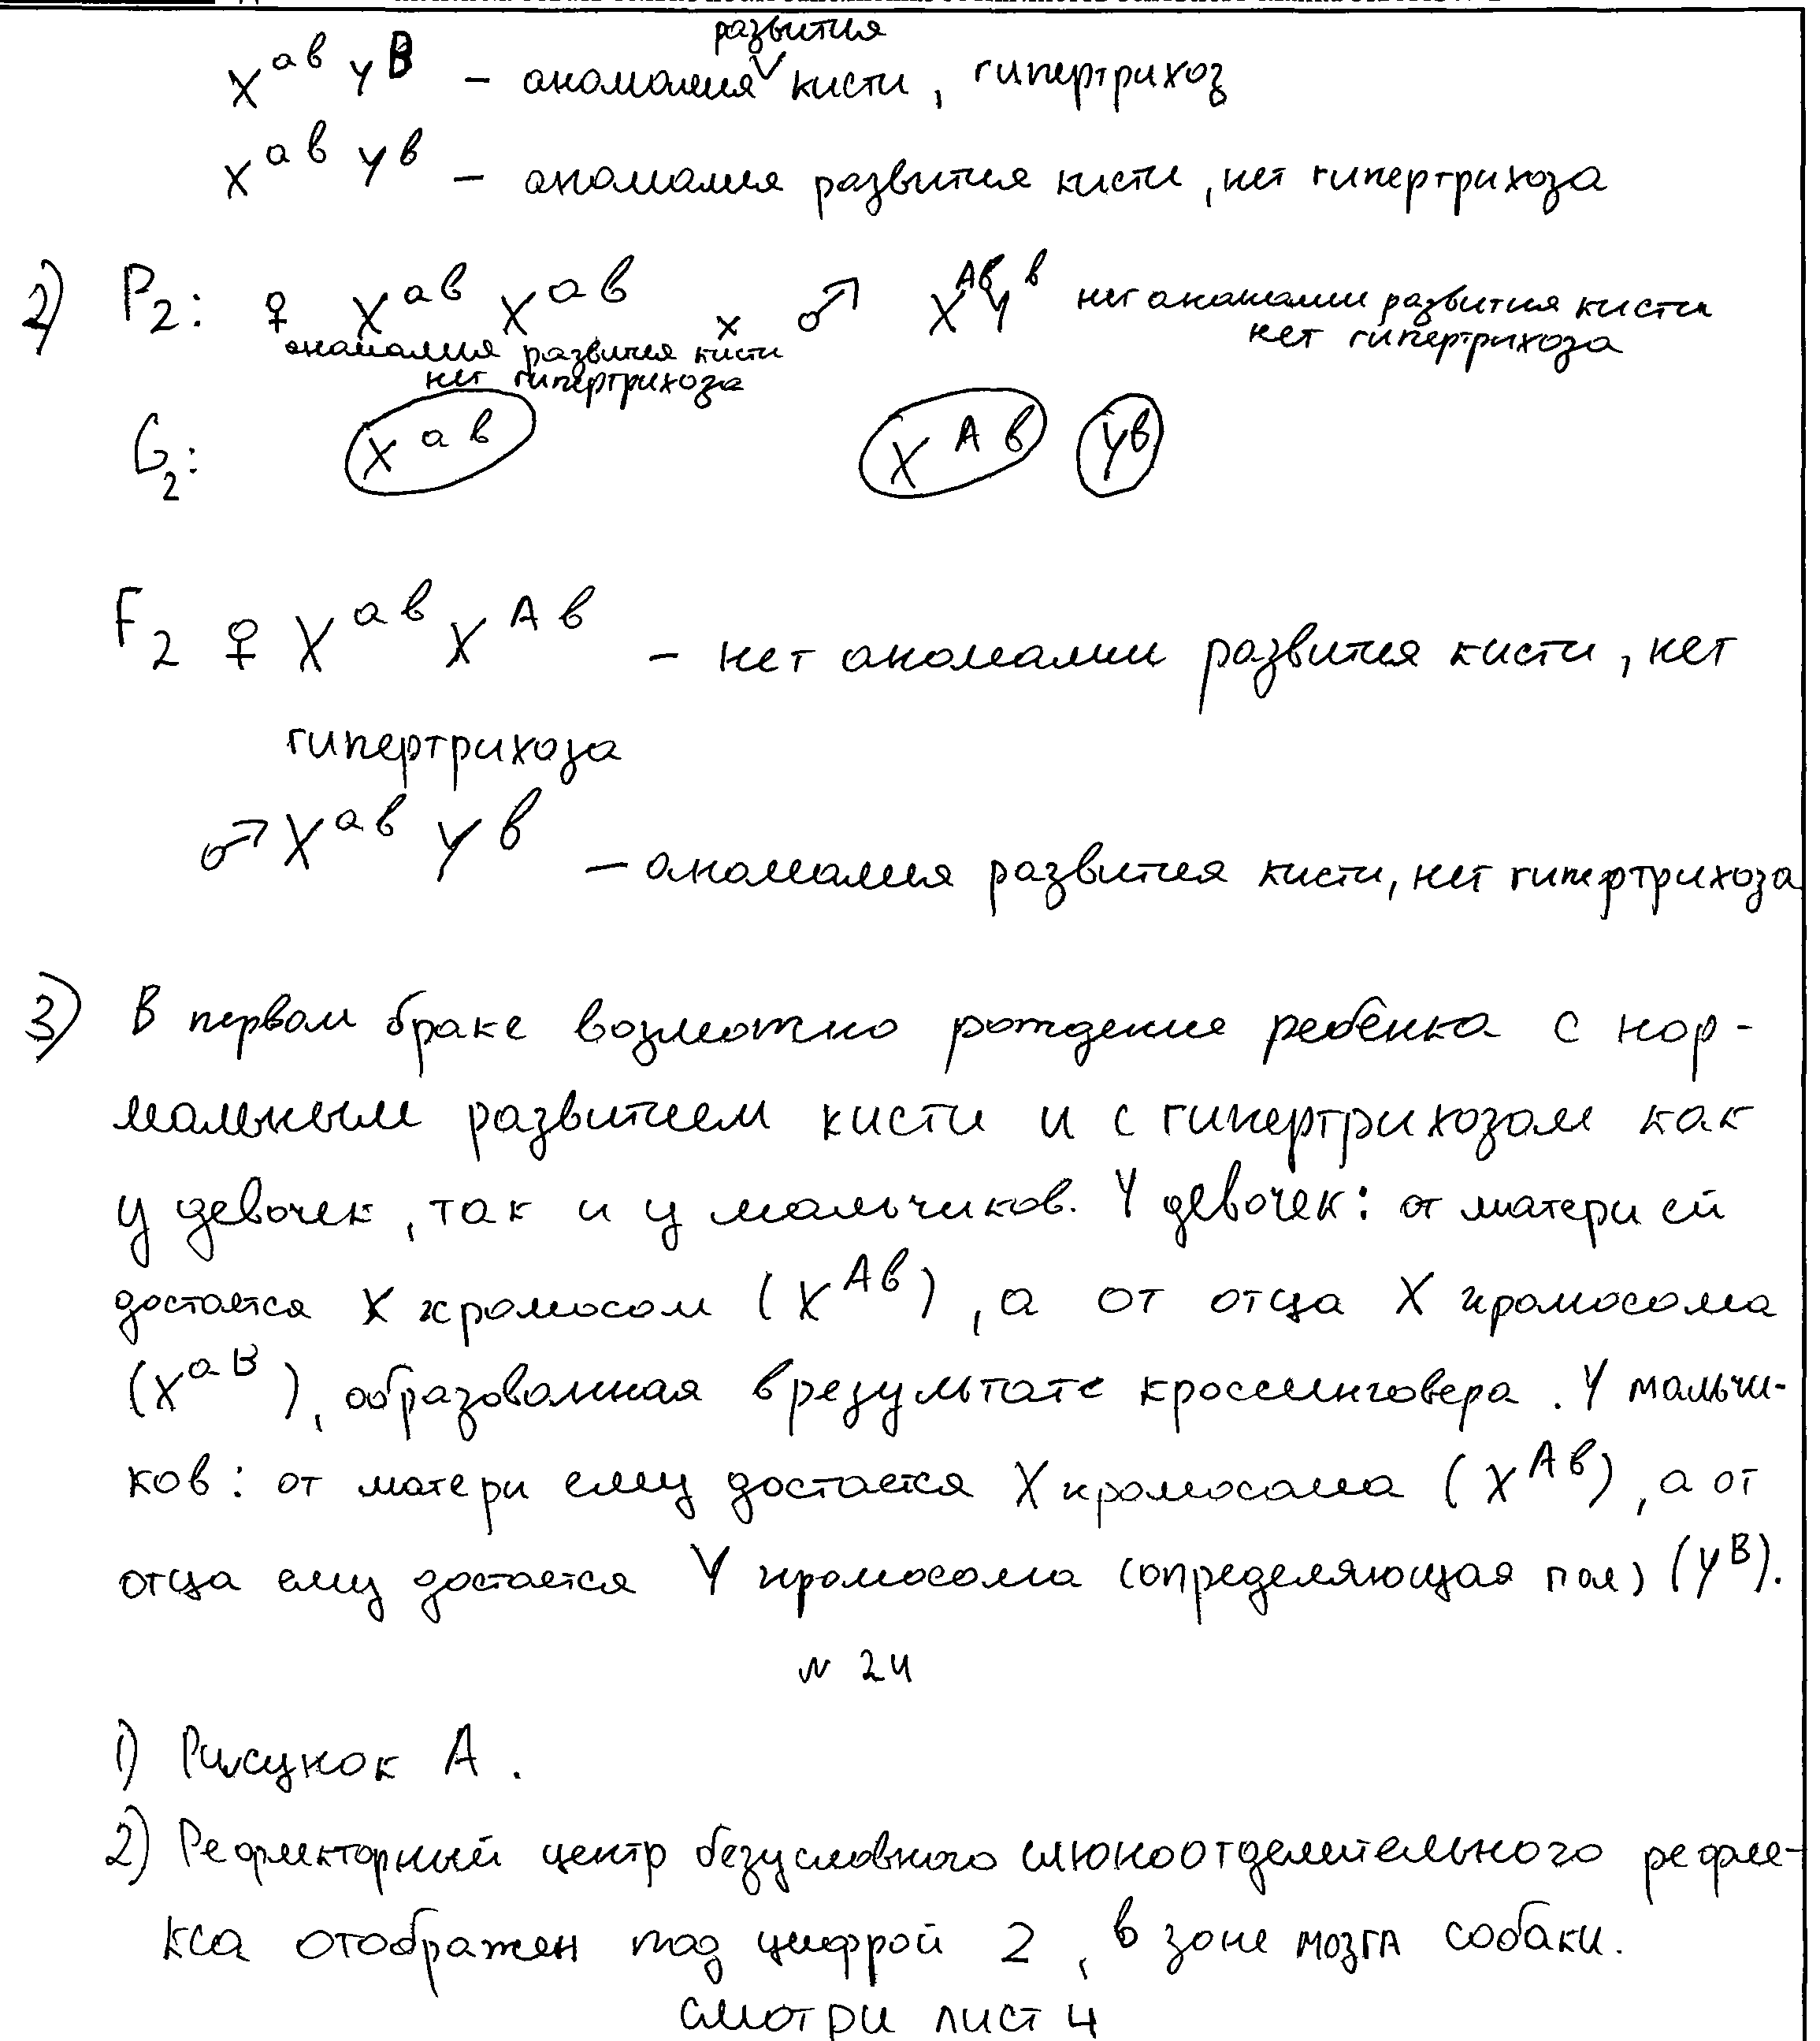 развития
X^ав Y^В – аномалия ∨ кисти, гипертрихоз
X^ав Y^в – аномалия развития кисти, нет гипертрихоза
2) P₂: ♀ X^ав X^ав x ♂ X^Ав Y^в нет аномалии развития кисти
нет гипертрихоза
аномалия развития кисти
нет гипертрихоза
G₂: X^ав X^Ав Y^в
F₂ ♀ X^ав X^Ав – нет аномалии развития кисти, нет
гипертрихоза
♂ X^ав Y^в – аномалия развития кисти, нет гипертрихоза
3) В первом браке возможно рождение ребёнка с нор-
мальным развитием кисти и с гипертрихозом как
у девочек, так и у мальчиков. У девочек: от матери ей
достается X хромосом (X^Ав), а от отца X хромосома
(X^аВ), образованная в результате кроссинговера. У мальчи-
ков: от матери ему достается X хромосома (X^Ав), а от
отца ему достается Y хромосома (определяющая пол) (Y^В).
N 24
1) Рисунок А.
2) Рефлекторный центр безусловного слюноотделительного рефле-
кса отображен под цифрой 2, в зоне мозга собаки.
смотри лист 4